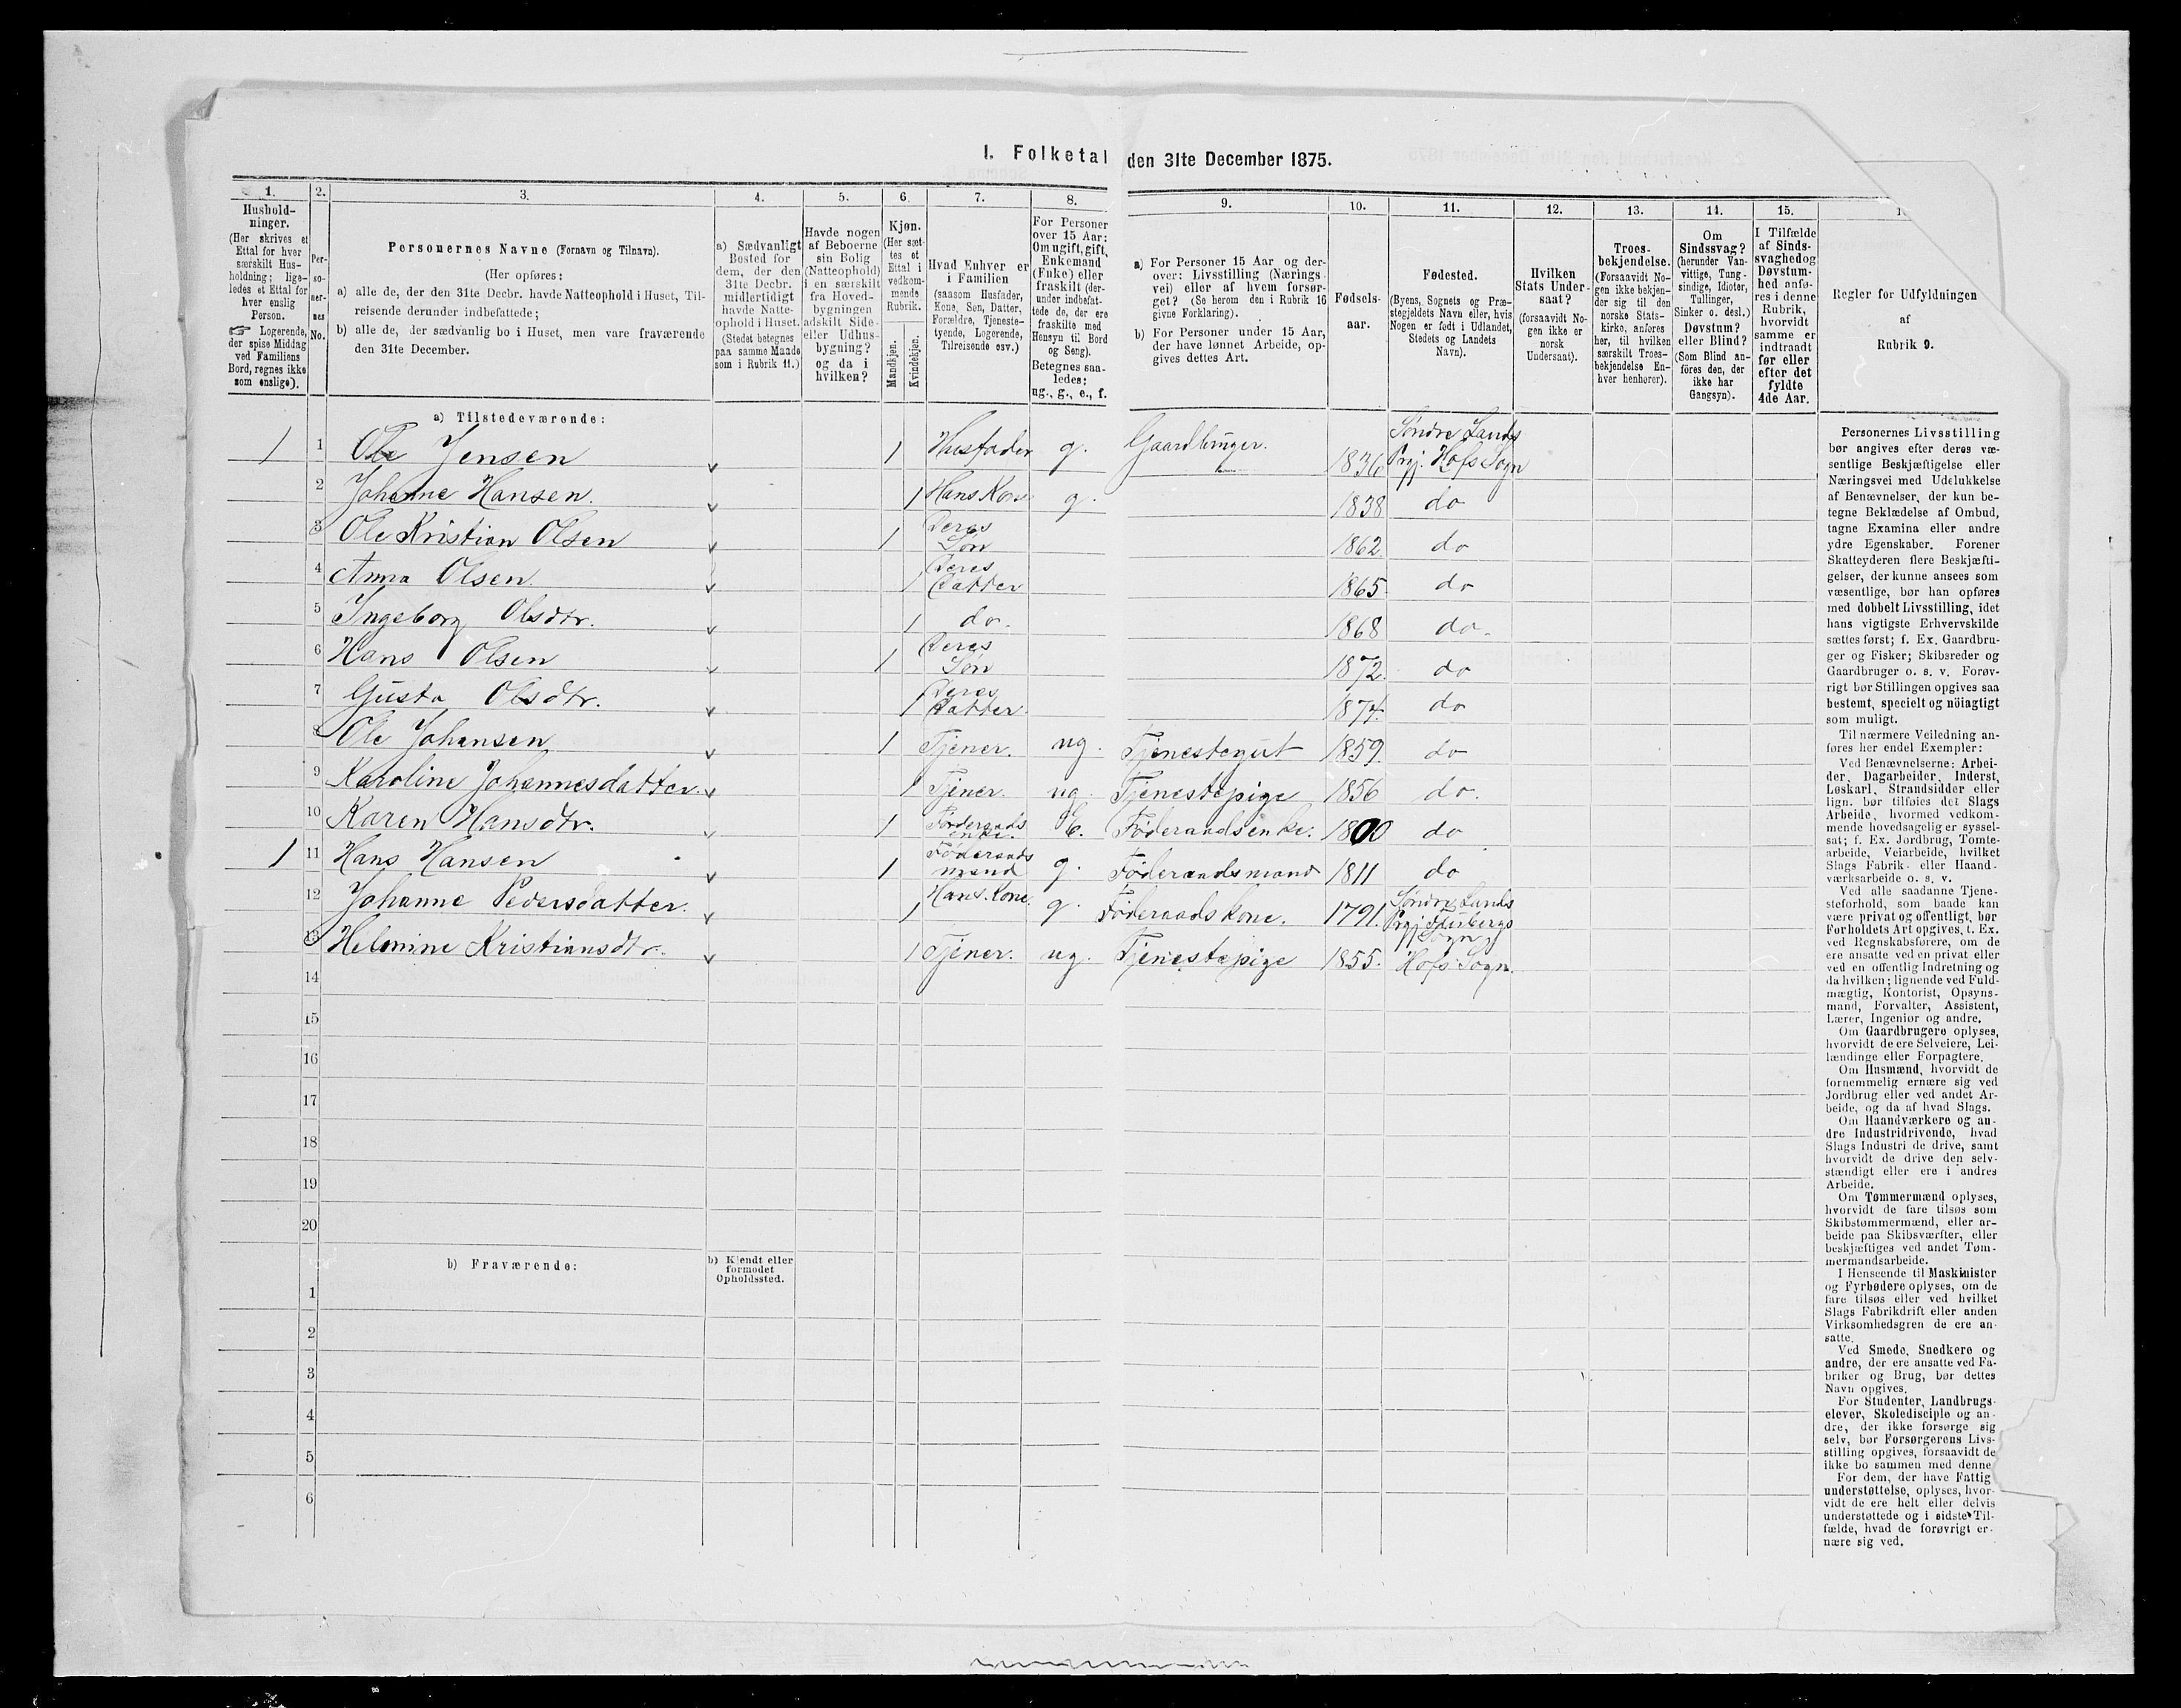 I. Folketal den 31te December 1875.
1. 2. 3. 4. 5. 6. 7. 8. 9. 10. 11. 12. 13. 14. 15.
Hushold-
ninger.
(Her skrives et
Ettal for hver
særskilt Hus-
holdning; lige-
ledes et Ettal for
hver enslig
Person.
☞ Logerende,
der spise Middag
ved Familiens
Bord, regnes ikke
som enslige).
Per-
so-
ner-
nes
No.
Personernes Navne (Fornavn og Tilnavn).
(Her opføres:
a) alle de, der den 31te Decbr. havde Natteophold i Huset, Til-
reisende derunder indbefattede;
b) alle de, der sædvanlig bo i Huset, men vare fraværende
den 31te December.
a) Sædvanligt
Bosted for
dem, der den
31te Decbr.
midlertidigt
havde Natte-
ophold i Huset.
(Stedet betegnes
paa samme Maade
som i Rubrik 11.)
Havde nogen
af Beboerne
sin Bolig
(Natteophold)
i en særskilt
fra Hoved-
bygningen
adskilt Side-
eller Udhus-
bygning?
og da i
hvilken?
Kjøn.
(Her sæt-
tes et
Ettal i
vedkom-
mende
Rubrik.
Mandkjøn.
Kvindekjøn.
Hvad Enhver er
i Familien
(saasom Husfader,
Kone, Søn, Datter,
Forældre, Tjeneste-
tyende, Logerende,
Tilreisende osv.)
For Personer
over 15 Aar:
Om ugift, gift,
Enkemand
(Enke) eller
fraskilt (der-
under indbefat-
tede de, der ere
fraskilte med
Hensyn til Bord
og Seng).
Betegnes saa-
ledes:
ug., g., e., f.
a) For Personer 15 Aar og der-
over: Livsstilling (Nærings-
vei) eller af hvem forsør-
get? (Se herom den i Rubrik 16
givne Forklaring).
b) For Personer under 15 Aar,
der have lønnet Arbeide, op-
gives dettes Art.
Fødsels-
aar.
Fødested.
(Byens, Sognets og Præ-
stegjeldets Navn eller, hvis
Nogen er født i Udlandet,
Stedets og Landets
Navn).
Hvilken
Stats Under-
saat?
(forsaavidt No-
gen ikke er
norsk
Undersaat).
Troes-
bekjendelse.
(Forsaavidt No-
gen ikke bekjen-
der sig til den
norske Stats-
kirke, anføres
her, til hvilken
særskilt Troes-
bekjendelse En-
hver henhører).
Om
Sindssvag?
(herunder Van-
vittige, Tung-
sindige, Idioter,
Tullinger,
Sinker o. desl.)
Døvstum?
eller Blind?
(Som Blind an-
föres den, der
ikke har
Gangsyn).
I Tilfælde
af Sinds-
svaghed og
Døvstum-
hed anfø-
res i denne
Rubrik,
hvorvidt
samme er
indtraadt
før eller
efter det
fyldte
4de Aar.
Regler for Udfyldningen
af
Rubrik 9.
a) Tilstedeværende:
1 1 Ole Jensen v 1 Husfader g. Gaardbruger. 1836 Søndre Lands Prgj. Hofs Sogn
2 Johanne Hansen. v 1 Hans Kone g. 1838 do
3 Ole Kristian Olsen v 1 Deres Søn 1862. do
4 Anna Olsen v 1 Deres Datter 1865 do
5 Ingeborg Olsdtr. v 1 do. 1868 do.
6 Hans Olsen v 1 Deres Søn 1872. do
7 Gusta Olsdtr. v 1 Deres Datter. 1874. do
8 Ole Johansen v 1 Tjener. ug. Tjenestegut 1859. do
9 Karoline Johannesdatter. v 1 Tjener. ug. Tjenestepige 1856 do.
10 Karen Hansdtr. v 1 Føderaads enke. E. Føderaadsenke. 1800 do
1 11 Hans Hansen v 1 Føderaads mand g. Føderaadsmand 1811 do
12 Johanne Pedersdatter. v 1 Hans Kone. g. Føderaadskone. 1791. Søndre Lands Prgj. Flubergs Sogn
13 Helmine Kristiansdtr. v 1 Tjener. ug. Tjenestepige 1855. Hofs Sogn.
14
15
16
17
18
19
20
b) Fraværende:
b) Kjendt eller
formodet
Opholdssted.
1
2
3
4
5
6
Personernes Livsstilling
bør angives efter deres væ-
sentlige Beskjæftigelse eller
Næringsvei med Udelukkelse
af Benævnelser, der kun be-
tegne Beklædelse af Ombud,
tagne Examina eller andre
ydre Egenskaber. Forener
Skatteyderen flere Beskjæfti-
gelser, der kunne ansees som
væsentlige, bør han opføres
med dobbelt Livsstilling, idet
hans vigtigste Erhvervskilde
sættes først; f. Ex. Gaardbru-
ger og Fisker; Skibsreder og
Gaardbruger o. s. v. Forøv-
rigt bør Stillingen opgives saa
bestemt, specielt og nöiagtigt
som muligt.
Til nærmere Veiledning an-
føres her endel Exempler:
Ved Benævnelserne: Arbei-
der, Dagarbeider, Inderst,
Løskarl, Strandsidder eller
lign. bør tilføies det Slags
Arbeide, hvormed vedkom-
mende hovedsagelig er syssel-
sat; f. Ex. Jordbrug, Tomte-
arbeide, Veiarbeide, hvilket
Slags Fabrik- eller Haand-
værksarbeide o. s. v.
Ved alle saadanne Tjene-
steforhold, som baade kan
være privat og offentligt, bør
Forholdets Art opgives, t. Ex.
ved Regnskabsførere, om de
ere ansatte ved en privat eller
ved en offentlig Indretning og
da hvilken; lignende ved Fuld-
mægtig, Kontorist, Opsyns-
mand, Forvalter, Assistent,
Lærer, Ingeniør og andre.
Om Gaardbrugere oplyses,
hvorvidt de ere Selveiere, Lei-
lændinge eller Forpagtere.
Om Husmænd, hvorvidt de
fornemmelig ernære sig ved
Jordbrug eller ved andet Ar-
beide, og da af hvad Slags.
Om Haandværkere og an-
dre Industridrivende, hvad
Slags Industri de drive, samt
hvorvidt de drive den selv-
stændigt eller ere i andres
Arbeide.
Om Tømmermænd oplyses,
hvorvidt de fare tilsøs som
Skibstømmermænd, eller ar-
beide paa Skibsværfter, eller
beskjæftiges ved andet Tøm-
mermandsarbeide.
I Henseende til Maskinister
og Fyrbødere oplyses, om de
fare tilsøs eller ved hvilket
Slags Fabrikdrift eller anden
Virksomhedsgren de ere an-
satte.
Ved Smede, Snedkere og
andre, der ere ansatte ved Fa-
briker og Brug, bør dettes
Navn opgives.
For Studenter, Landbrugs-
elever, Skoledisciple og an-
dre, der ikke forsørge sig
selv, bør Forsørgerens Livs-
stilling opgives, forsaavidt de
ikke bo sammen med denne
For dem, der have Fattig
understøttelse, oplyses, hvor-
vidt de ere helt eller delvis
understøttede og i sidste Til-
fælde, hvad de forøvrigt er-
nære sig ved.